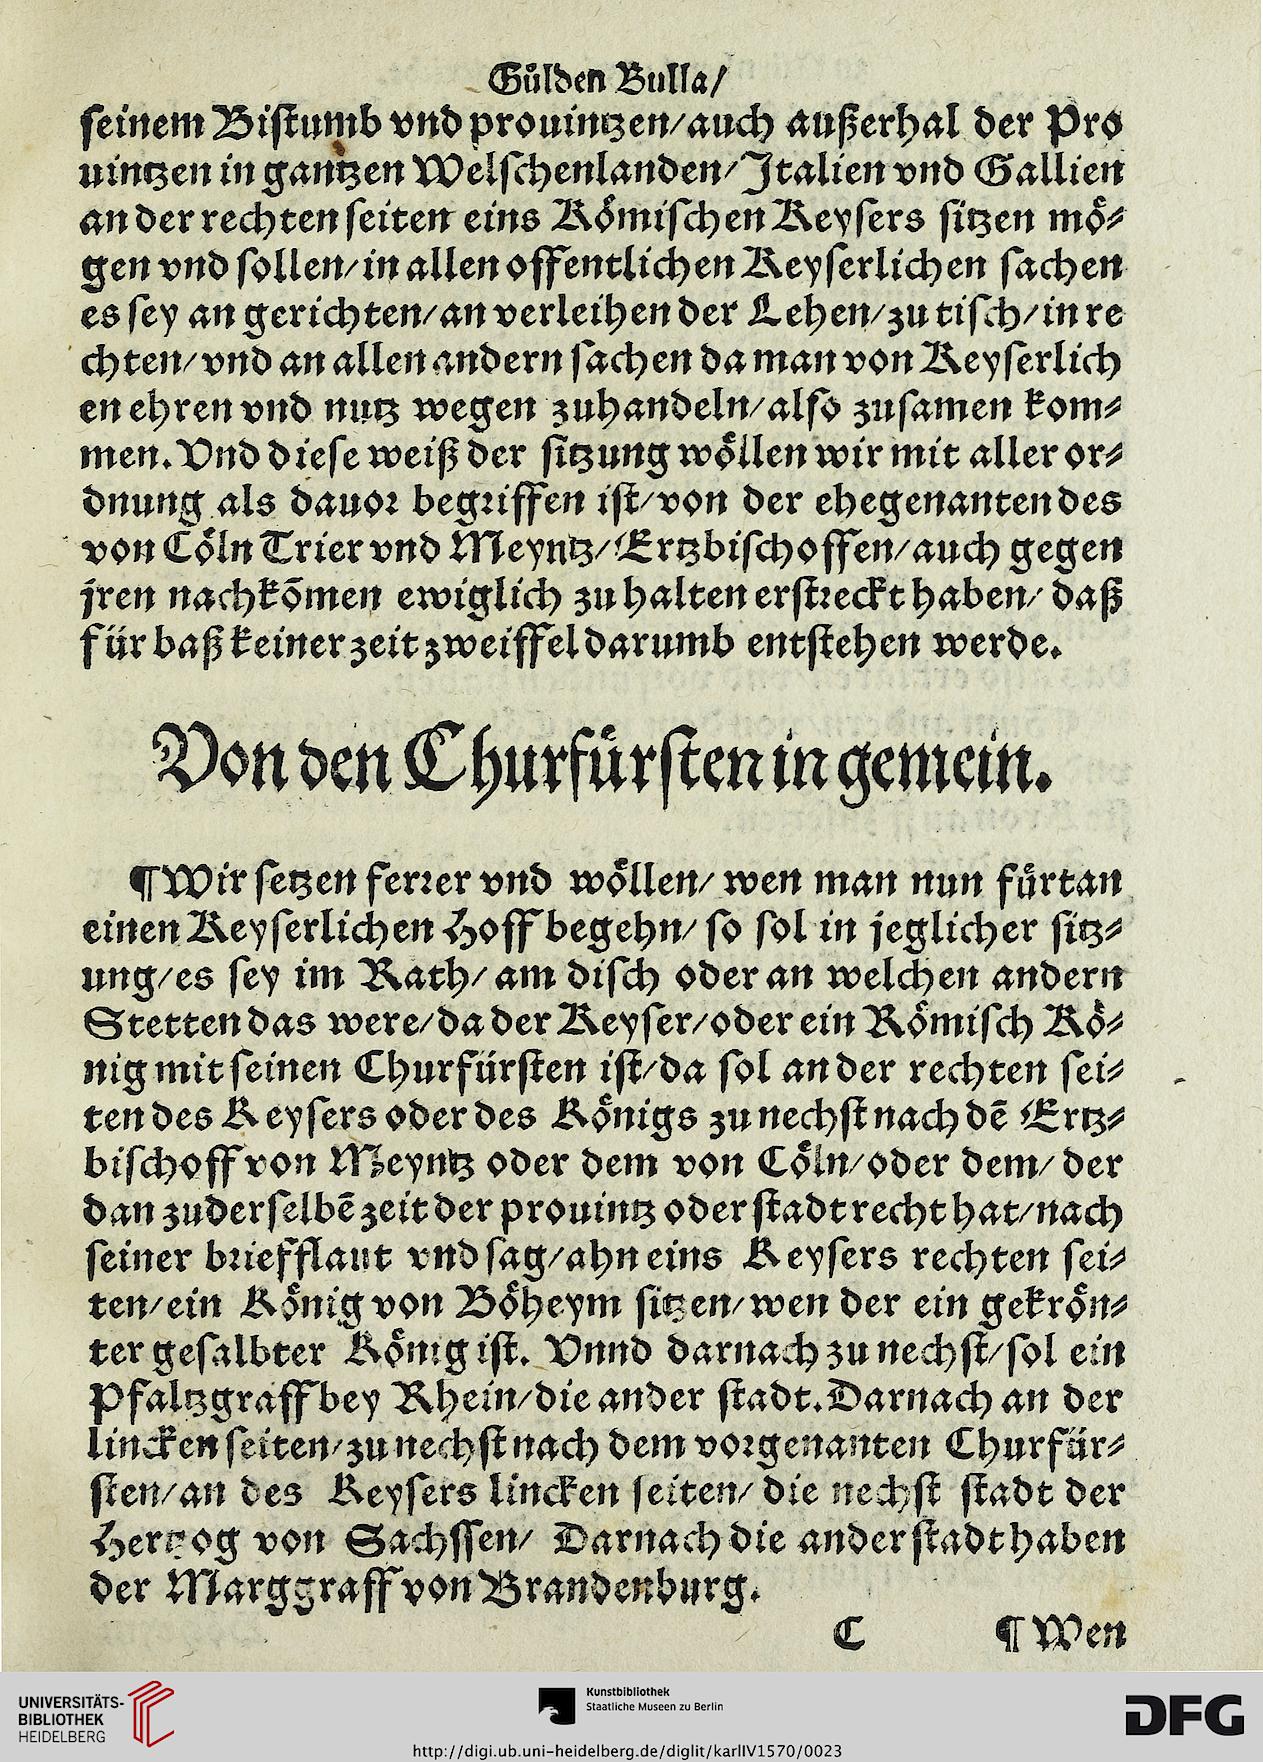 Gůlden Bulla/
seinem Bistumb vnd prouintzen/auch außerhal der Pro
uintzen in gantzen Welschenlanden/Italien vnd Gallien
an der rechten seiten eins Rőmischen Keysers sitzen mő⸗
gen vnd sollen/in allen offentlichen Keyserlichen sachen
es sey an gerichten/an verleihen der Lehen/zu tisch/in re
chten/vnd an allen andern sachen da man von Keyserlich
en ehren vnd nutz wegen zuhandeln/also zusamen kom⸗
men. Vnd diese weiß der sitzung wőllen wir mit aller or⸗
dnung als dauor begriffen ist/von der ehegenanten des
von Cőln Trier vnd Meyntz/Ertzbischoffen/auch gegen
jren nachkōmen ewiglich zu halten erstreckt haben/daß
für baß keiner zeit zweiffel darumb entstehen werde.
Von den Churfürsten in gemein.
¶Wir setzen ferrer vnd wőllen/wen man nun fürtan
einen Keyserlichen Hoff begehn/so sol in jeglicher sitz⸗
ung/es sey im Rath/am disch oder an welchen andern
Stetten das were/da der Keyser/oder ein Rőmisch Kő⸗
nig mit seinen Churfürsten ist/da sol an der rechten sei⸗
ten des Keysers oder des Kőnigs zu nechst nach dē Ertz⸗
bischoff von Meyntz oder dem von Cőln/oder dem/der
dan zuderselbē zeit der prouintz oder stadt recht hat/nach
seiner briefflaut vnd sag/ahn eins Keysers rechten sei⸗
ten/ein Kőnig von Bőheym sitzen/wen der ein gekrőn⸗
ter gesalbter Kőnig ist. Vnnd darnach zu nechst/sol ein
Pfaltzgraff bey Rhein/die ander stadt. Darnach an der
lincken seiten/zu nechst nach dem vorgenanten Churfür⸗
sten/an des Keysers lincken seiten/die nechst stadt der
Hertzog von Sachssen/Darnach die ander stadt haben
der Marggraff von Brandenburg.
C ¶Wen
UNIVERSITÄTS-
BIBLIOTHEK
HEIDELBERG
Kunstbibliothek
Staatliche Museen zu Berlin
DFG
http://digi.ub.uni-heidelberg.de/diglit/karlIV1570/0023